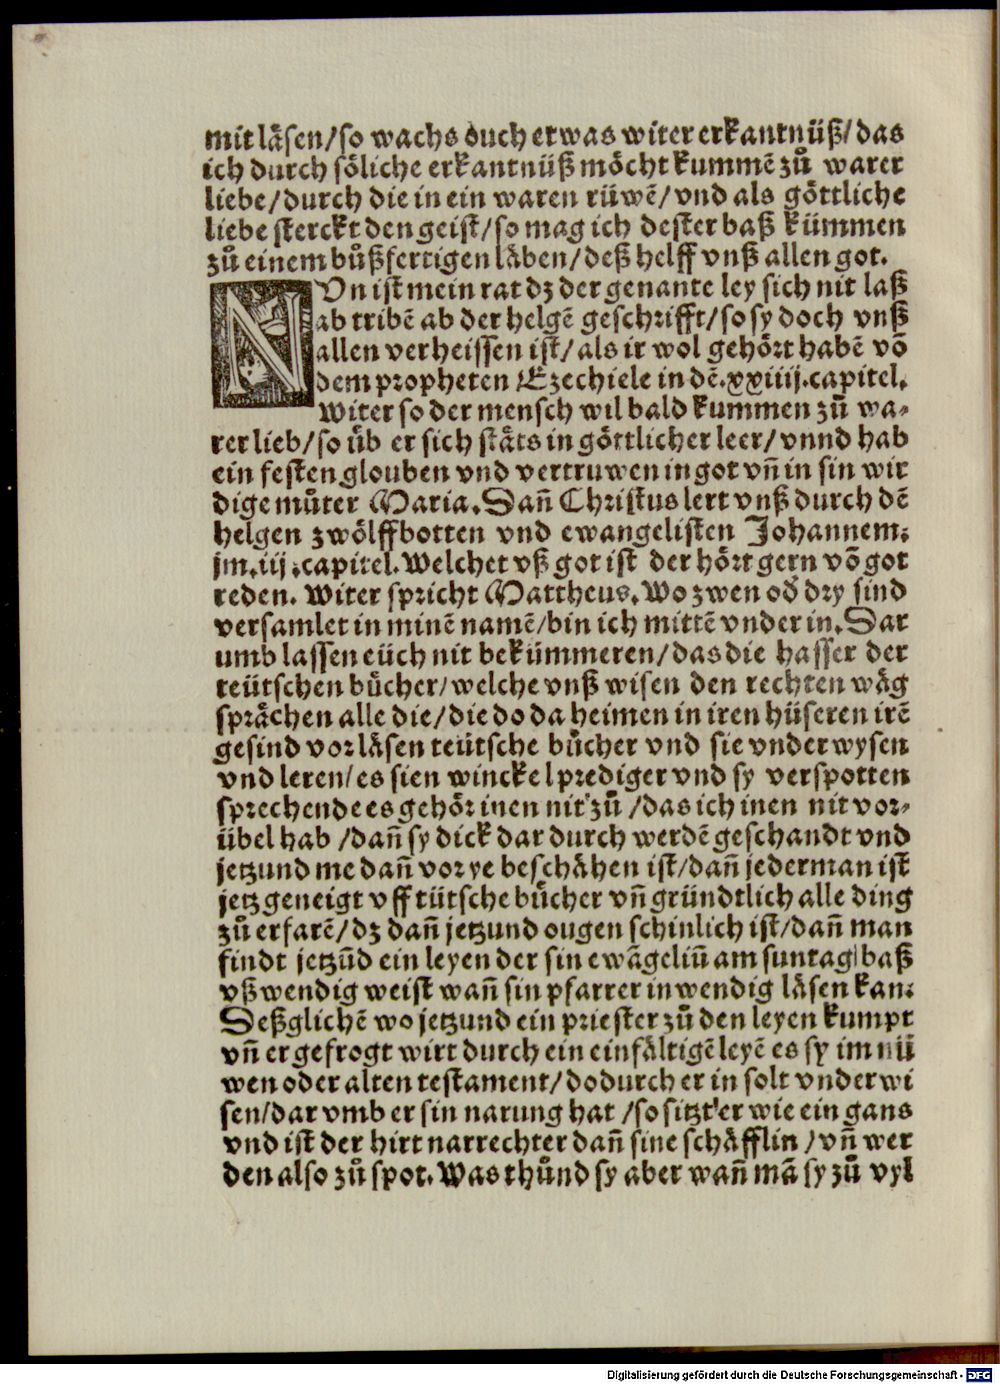 mit läsen/so wachs ouch etwas witer erkantnüß/das
ich durch söliche erkantnüß möcht kummē zů warer
liebe/durch die in ein waren rüwē/vnd als göttliche
liebe sterckt den geist/so mag ich dester baß kümmen
zů einem bůßfertigen läben/deß helff vnß allen got.
NVn ist mein rat dz der genante ley sich nit laß
ab tribē ab der helgē geschrifft/so sy doch vnß
allen verheissen ist/als ir wol gehört habē vō
dem propheten Ezechiele in dē.xxiiij.capitel.
Witer so der mensch wil bald kummen zů wa⸗
rer lieb/so üb er sich stäts in göttlicher leer/vnnd hab
ein festen glouben vnd vertruwen in got vñ in sin wir
dige můter Maria. Dañ Christus lert vnß durch dē
helgen zwölffbotten vnd ewangelisten Johannem:
jm.iij.capitel. Welchet vß got ist der hört gern vō got
reden. Witer spricht Mattheus. Wo zwen od̕ dry sind
versamlet in minē namē/bin ich mittē vnder in. Dar
umb lassen eüch nit bekümmeren/das die hasser der
teütschen bücher/welche vnß wisen den rechten wäg
sprächen alle die/die do da heimen in iren hüseren irē
gesind vor läsen teütsche bücher vnd sie vnder wysen
vnd leren/es sien winckel prediger vnd sy verspotten
sprechende es gehör inen nit zů/das ich inen nit vor⸗
übel hab/dañ sy dick dar durch werdē geschandt vnd
jetzund me dañ vor ye beschähen ist/dañ jederman ist
jetz geneigt vff tütsche bücher vñ gründtlich alle ding
zů erfarē/dz dañ jetzund ougen schinlich ist/dañ man
findt jetzūd ein leyen der sin ewāgeliū am suntag baß
vß wendig weist wañ sin pfarrer inwendig läsen kan:
Deßglichē wo jetzund ein priester zů den leyen kumpt
vñ er gefrogt wirt durch ein einfältigē leyē es sy im nü
wen oder alten testament/dodurch er in solt vnder wi
sen/dar vmb er sin narung hat/so sitzt er wie ein gans
vnd ist der hirt narrechter dañ sine schäfflin/vñ wer
den also zů spot. Was thůnd sy aber wañ mā sy zů vyl
Digitalisierung gefördert durch die Deutsche Forschungsgemeinschaft - DFG